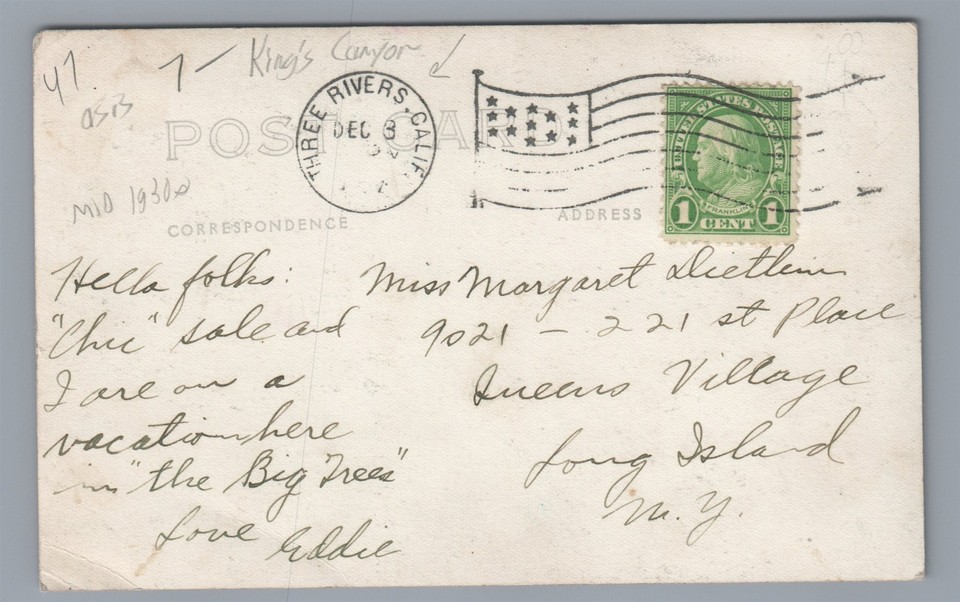 47
7 -
King's Canyon
POST CARD
MID 1930s
THREE RIVERS, CALIF.
DEC 3
UNITED STATES POSTAGE
FRANKLIN
1 CENT 1
CORRESPONDENCE
ADDRESS
Hello folks:
"Chic" sale and
I are on a
vacation here
in "the Big Trees"
Love Eddie
Miss Margaret
9021 - 221 st Place
Queens Village
Long Island
N.Y.